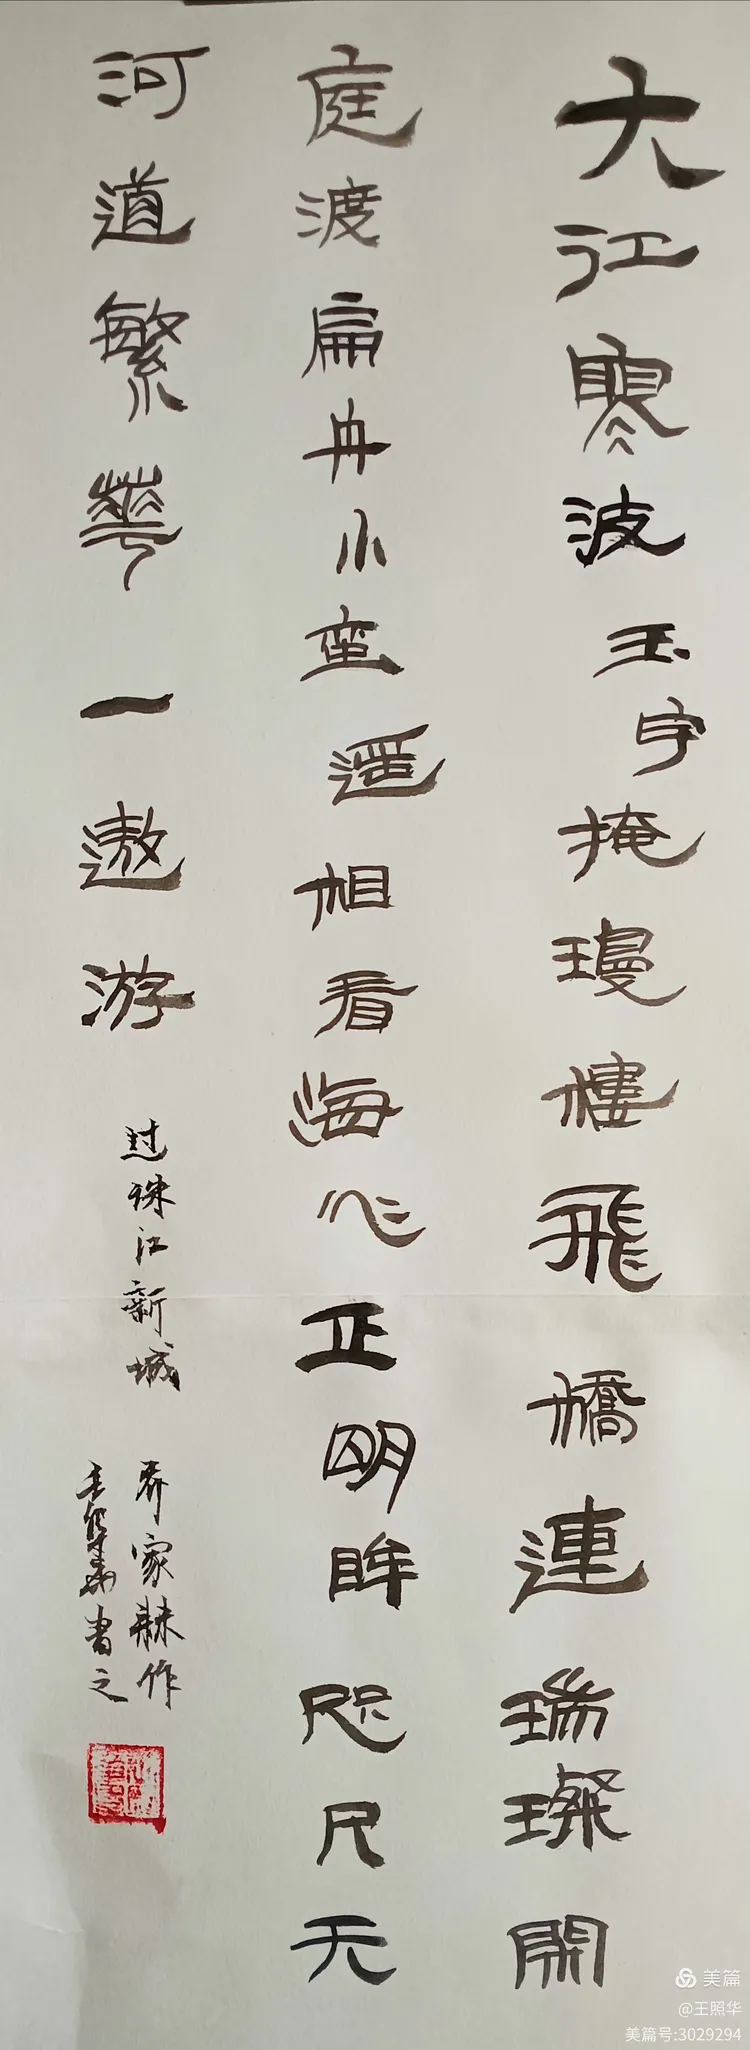 大江寒波玉宇掩璦樓飛橋連瑞璨開
庭渡扁舟小蛮迺相看海心正明眸咫尺天
河道繁華一遨游
过珠江新城
乔家赫作
王照華书之
美篇
@王照华
美篇号:3029294